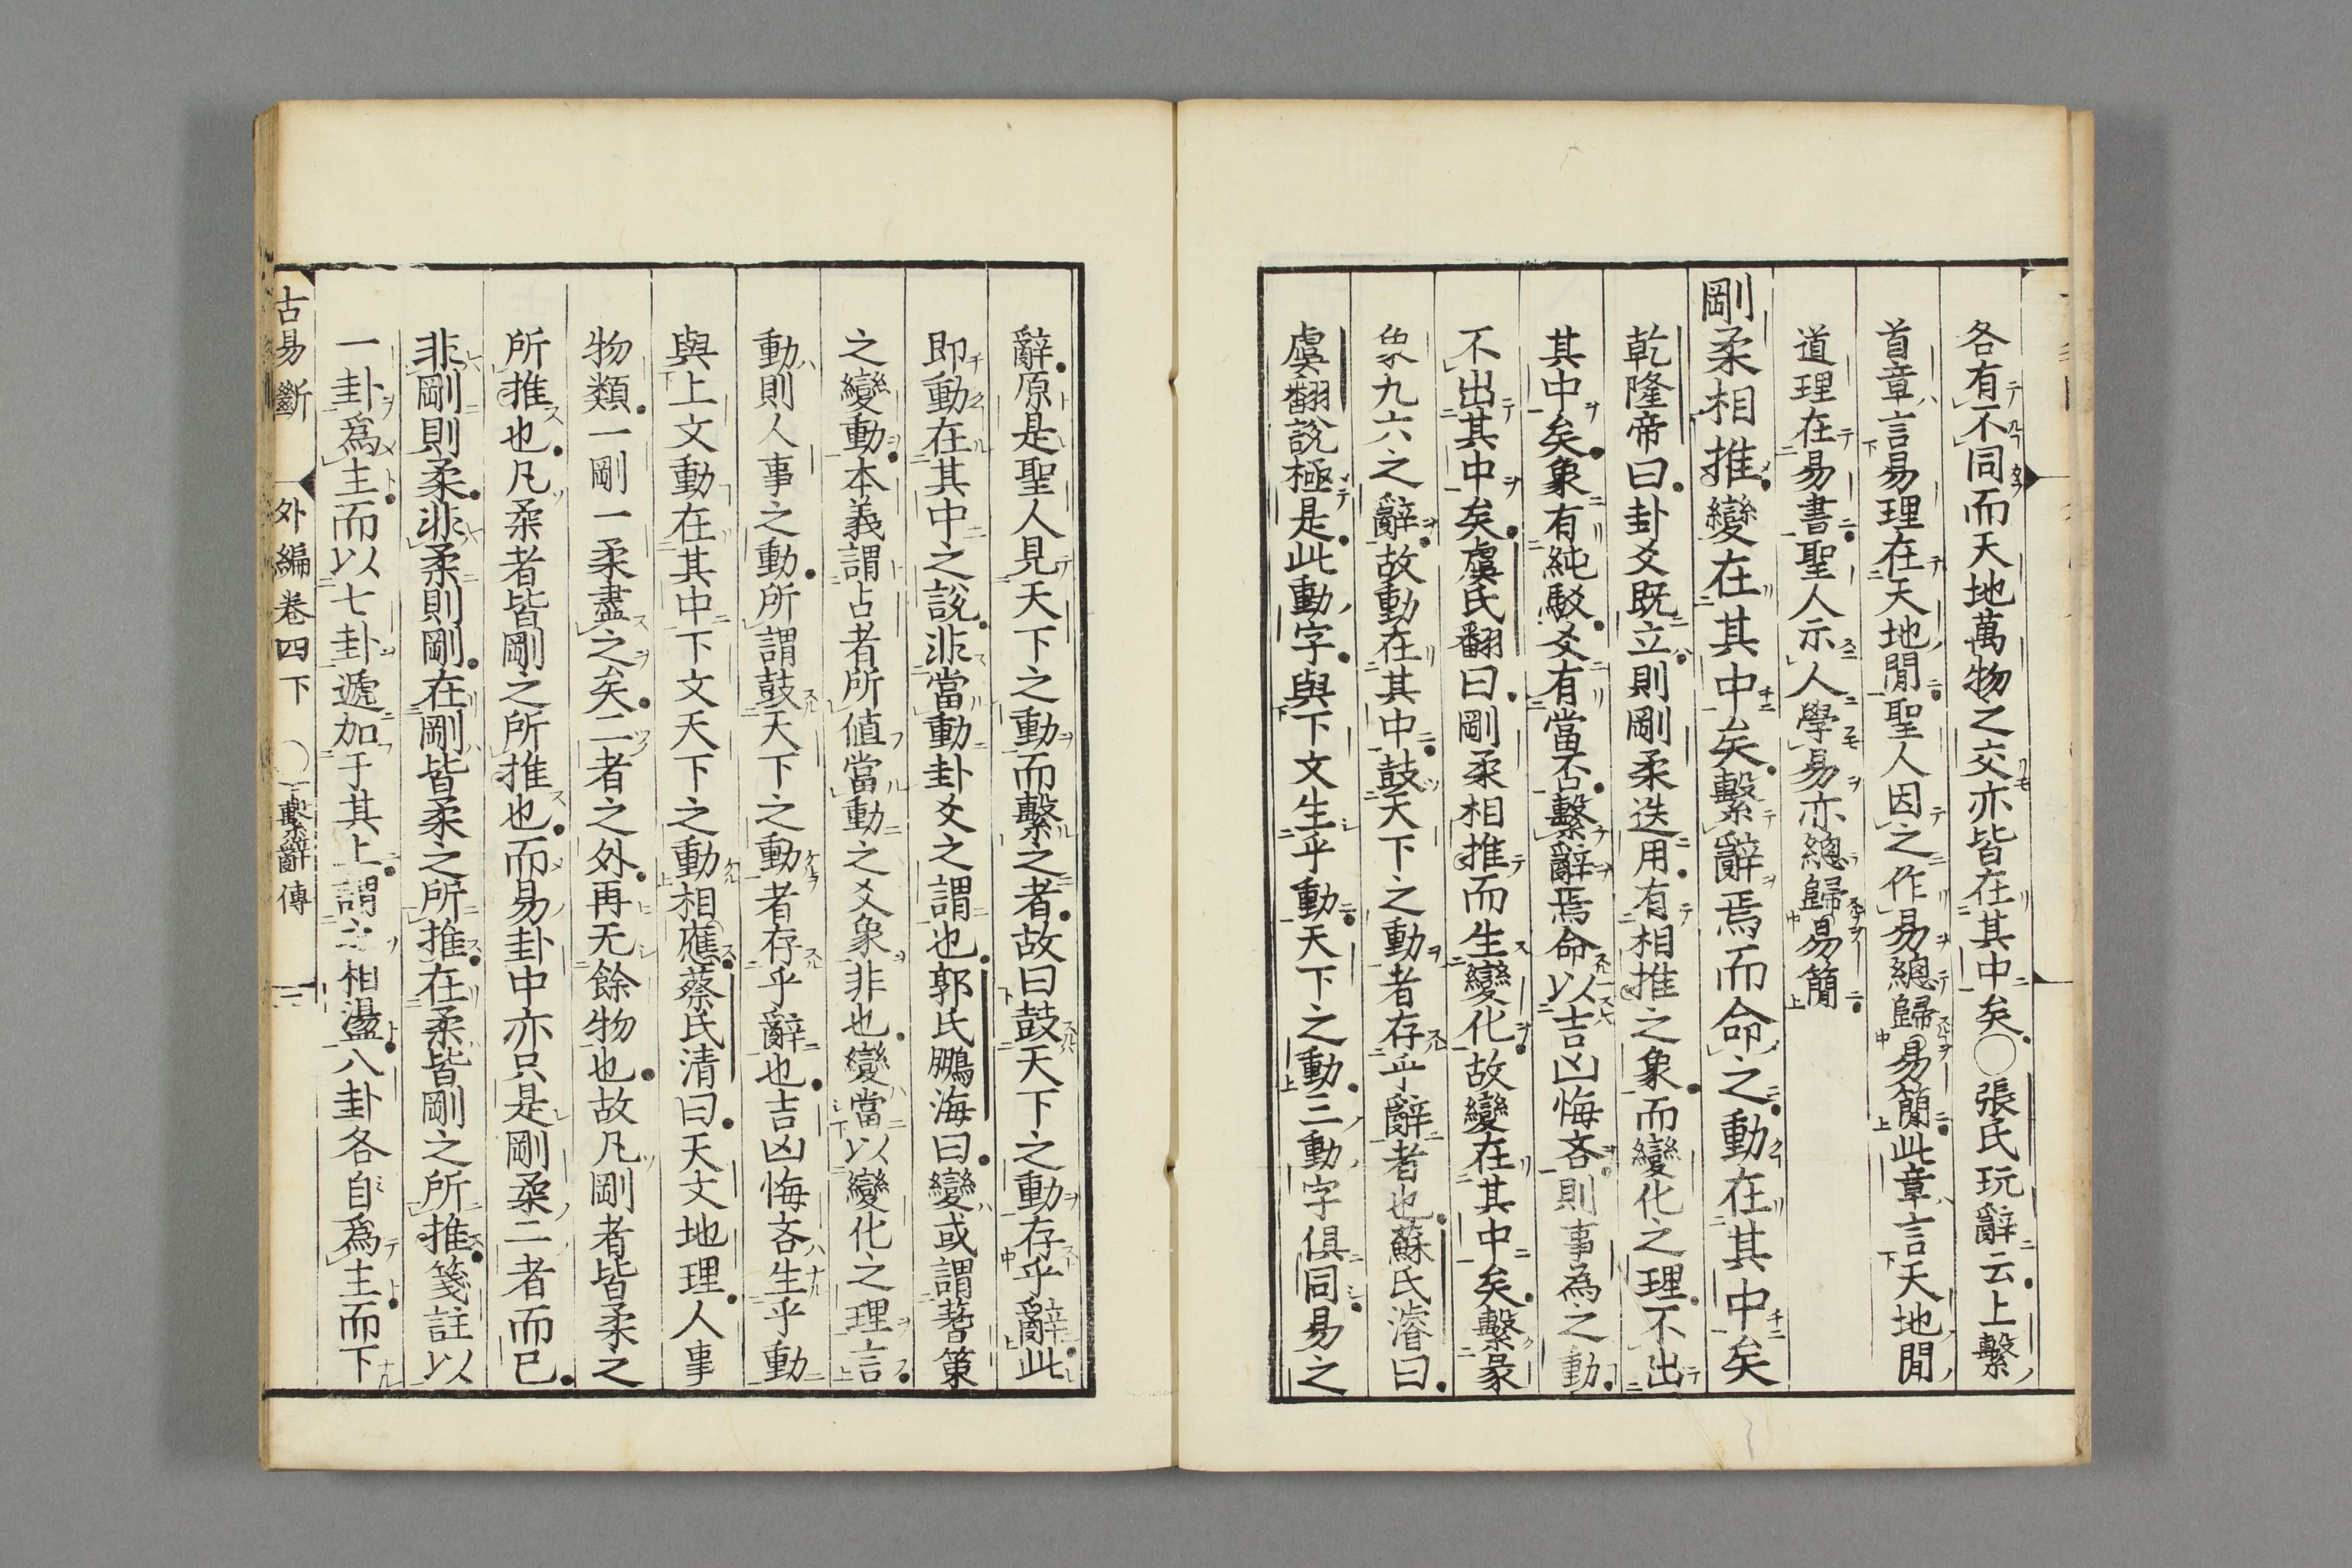 各有不同而天地萬物之交亦皆在其中矣○張氏玩辭云上繫
首章言易理在天地閒聖人因之作易總歸易簡此章言天地閒
道理在易書聖人示人學易亦總歸易簡
剛柔相推變在其中矣繫辭焉而命之動在其中矣
乾隆帝曰卦爻既立則剛柔迭用有相推之象而變化之理不出
其中矣象有純駁爻有當否繫辭焉命以吉凶悔吝則事為之動
不出其中矣虞氏翻曰剛柔相推而生變化故變在其中矣繫彖
象九六之辭故動在其中鼓天下之動者存乎辭者也蘇氏濬曰
虞翻說極是此動字與下文生乎動天下之動三動字俱同易之
辭原是聖人見天下之動而繫之者故曰鼓天下之動存乎辭此
即動在其中之說非當動卦爻之謂也郭氏鵬海曰變或謂蓍策
之變動本義謂占者所値當動之爻象非也變當以變化之理言
動則人事之動所謂鼓天下之動者存乎辭也吉凶悔吝生乎動
與上文動在其中下文天下之動相應蔡氏清曰天文地理人事
物類一剛一柔盡之矣二者之外再无餘物也故凡剛者皆柔之
所推也凡柔者皆剛之所推也而易卦中亦只是剛柔二者而已
非剛則柔非柔則剛在剛皆柔之所推在柔皆剛之所推箋註以
一卦爲主而以七卦遞加于其上謂之相盪八卦各自爲主而下
古易斷 外編卷四下 ○繫辭傳